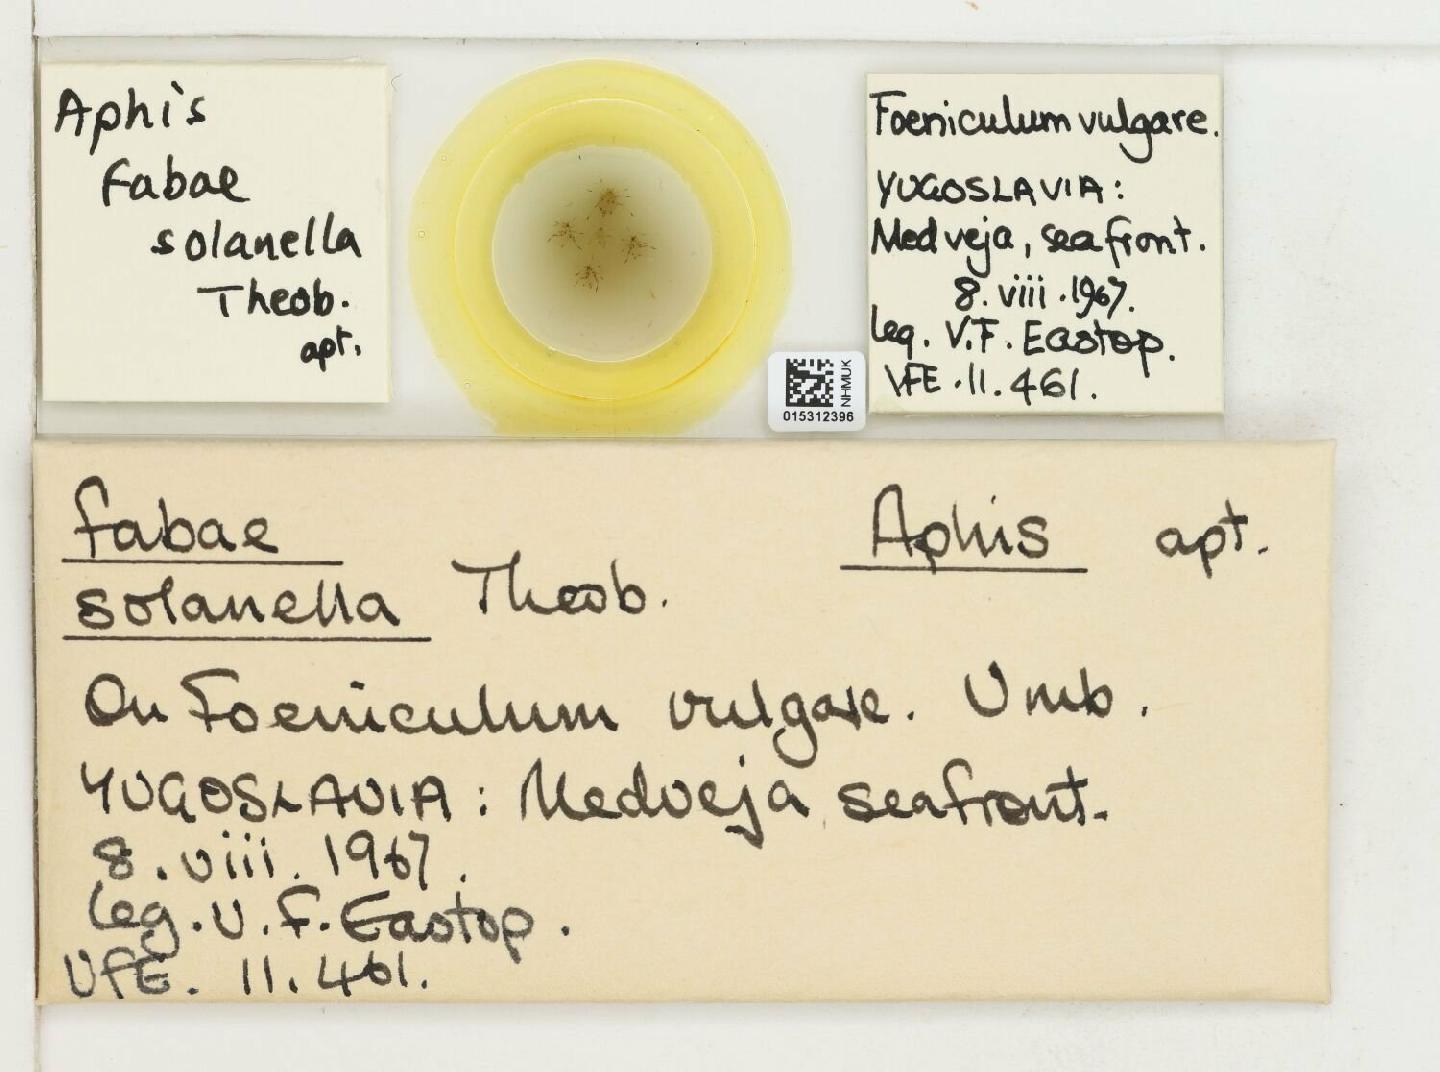 Aphis
fabae
solanella
Theob.
apt.
NHMUK
015312396
Foeniculum vulgare.
YUGOSLAVIA:
Medveja, seafront.
8. viii. 1967.
leg. V.F. Eastop.
VFE. 11. 461.
fabae
Aphis apt.
solanella Theob.
On Foeniculum vulgare. Umb.
YUGOSLAVIA: Medveja seafront.
8. viii. 1967.
leg. V. F. Eastop.
VFE. 11. 461.